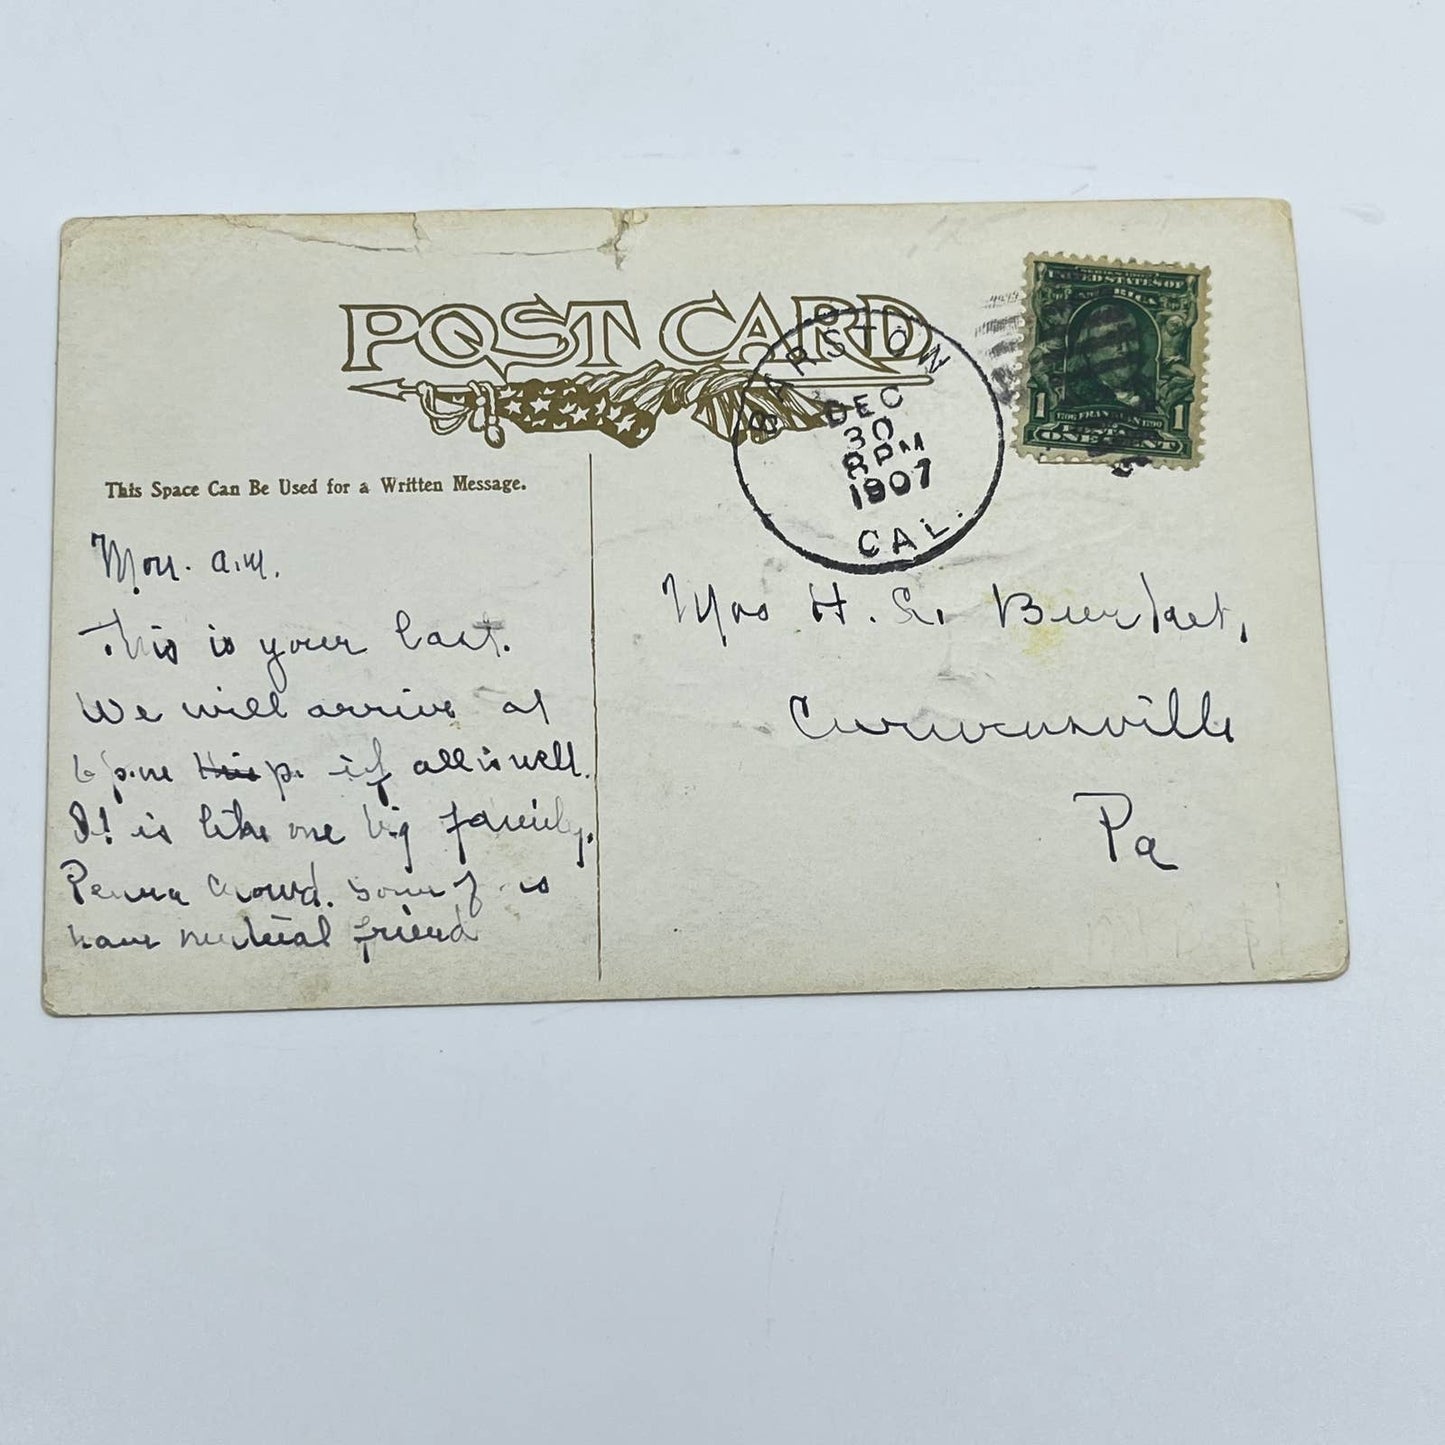 POST CARD
BARSTOW
DEC
30
8 PM
1907
CAL.
SERIES 1902
UNITED STATES OF
RICA
1 1706 FRANKLIN 1790 1
ONE CENT
This Space Can Be Used for a Written Message.
Mon. a.m.
This is your last.
We will arrive at
6 p.m if all is well.
It is like one big family.
Penna Crowd. Some of us
have mutual friend
Mrs H. Burket,
Curwensville
Pa